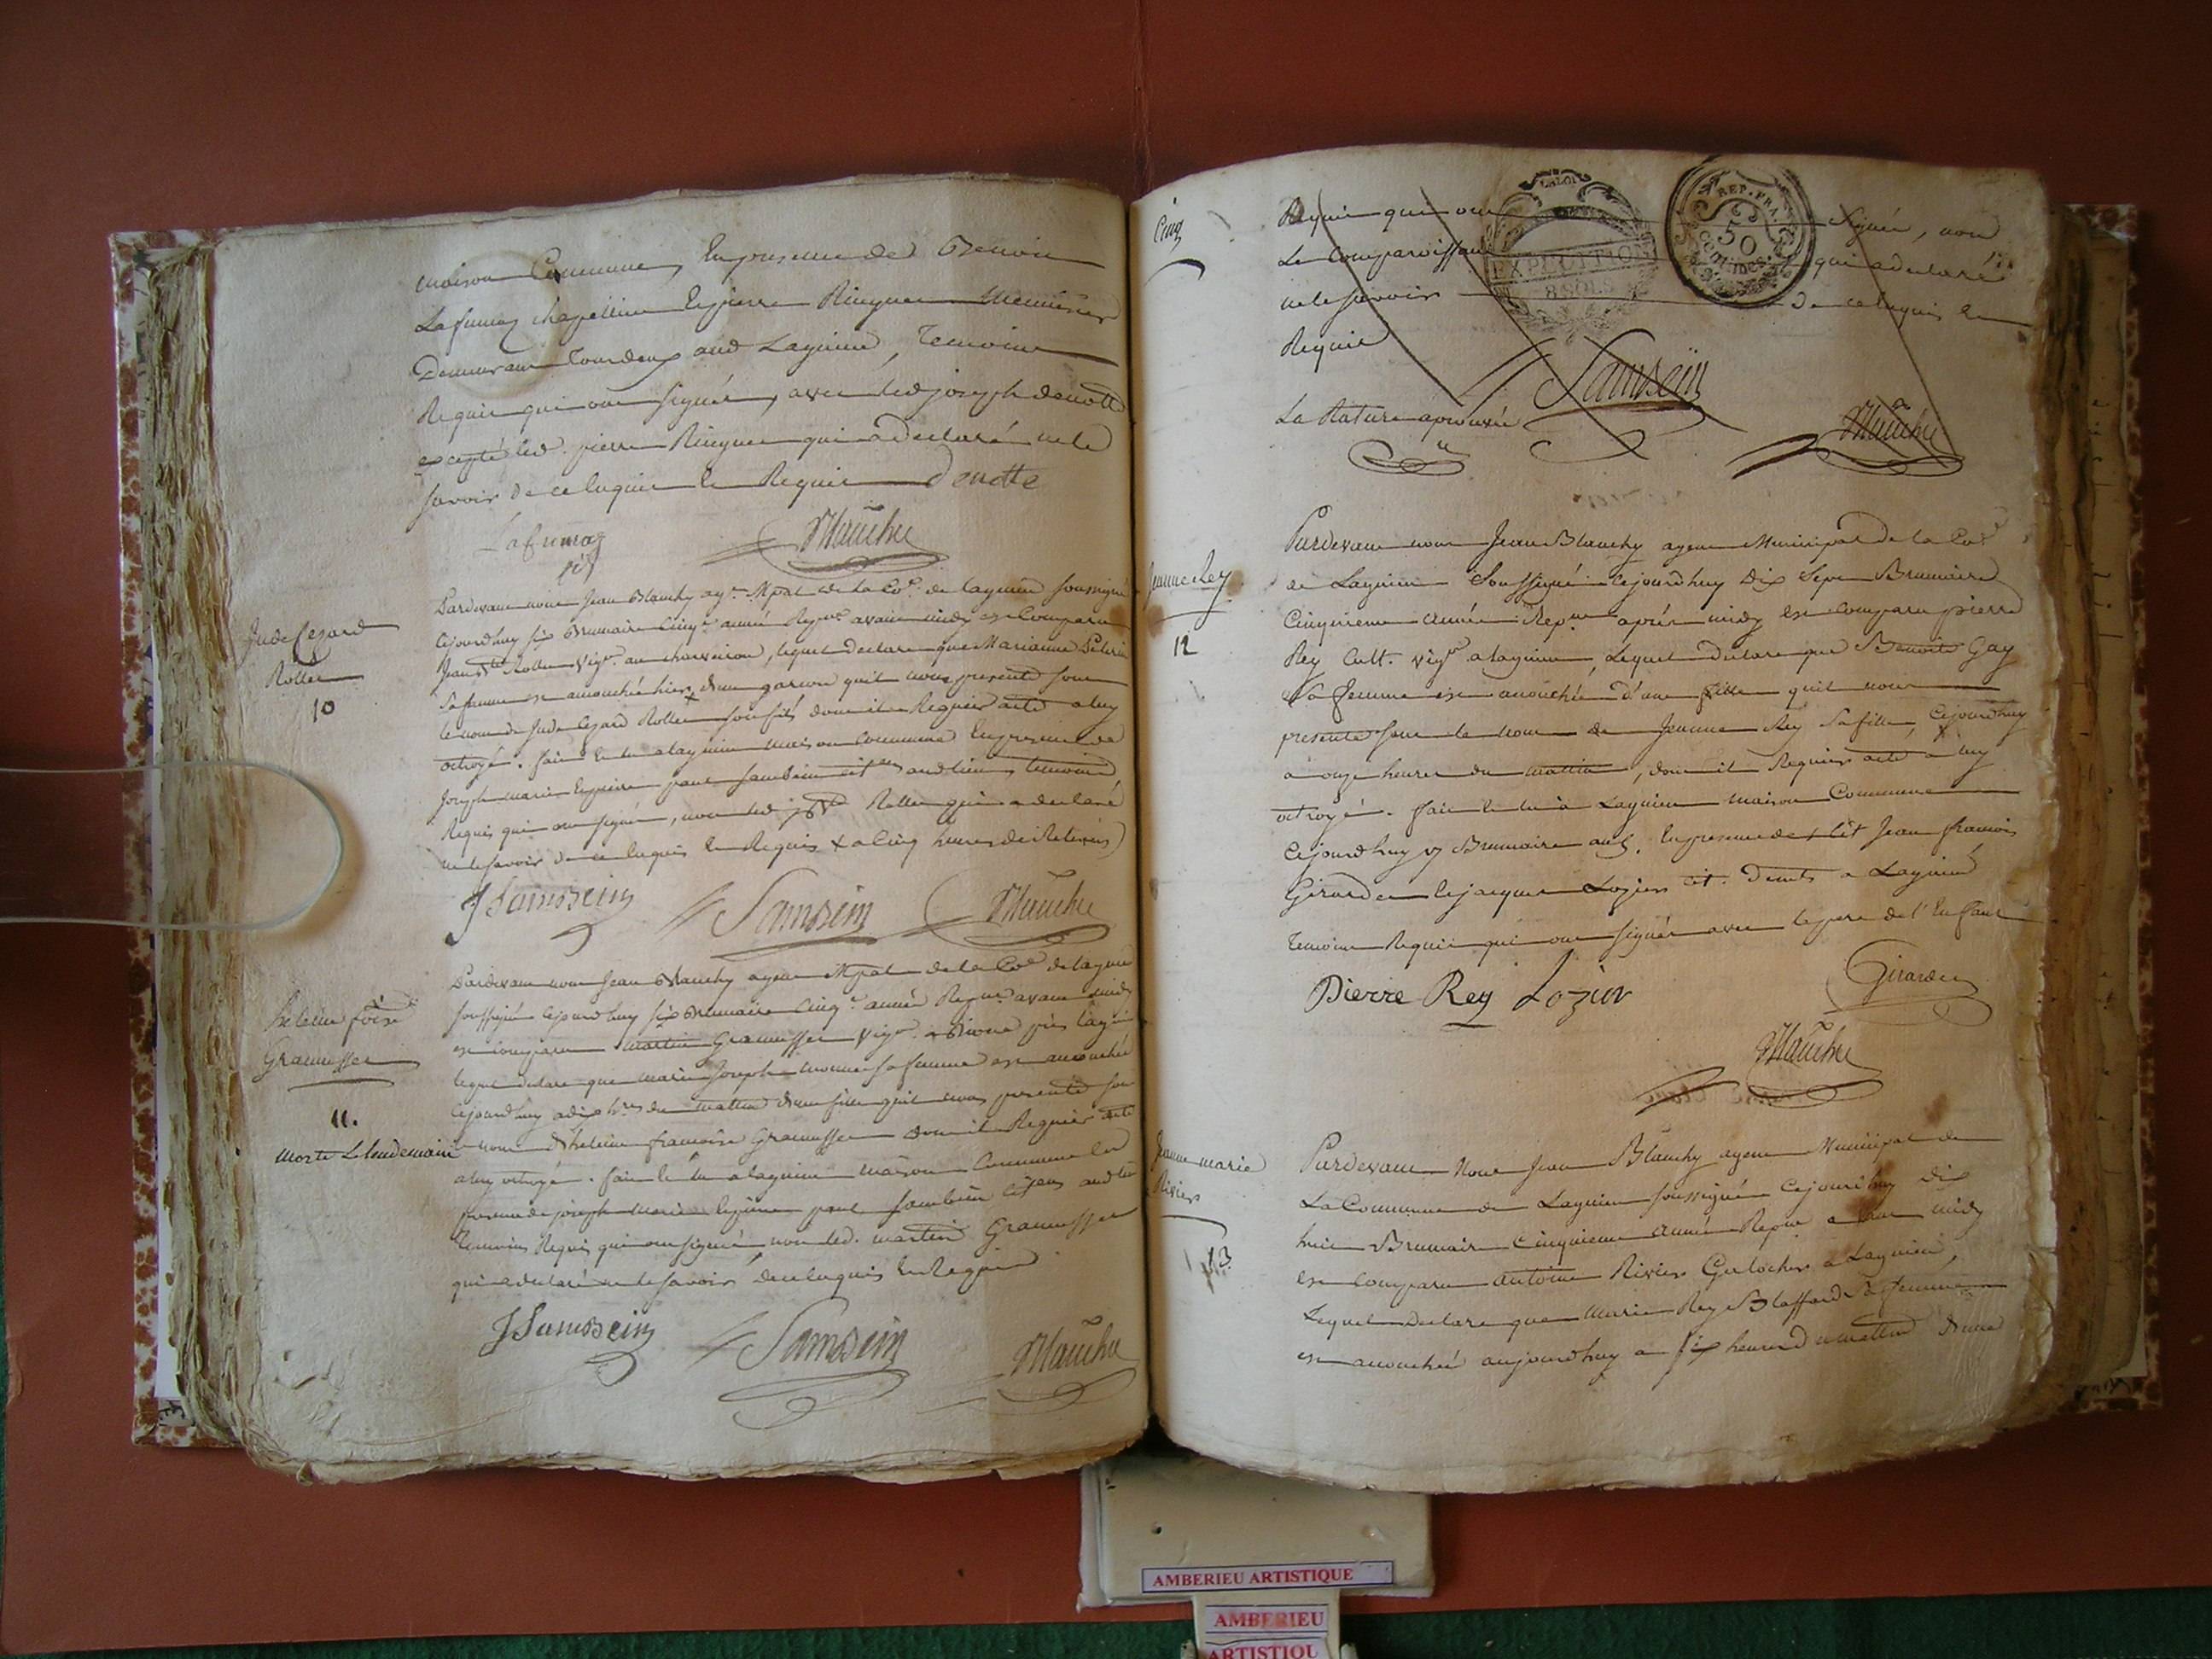 maison Commune, En presence de Benoit
Lafumaz chapellier Et pierre Ringuet Menuisier
Demeurant tous deux aud Lagnieu, temoins
Requis qui ont signés, avec led joseph denotte
excepté led. pierre Ringuet qui a declaré ne le
savoir de ce Enquis Et Requis Denotte
Lafumaz
Blanchy
Jude Cezard
Rollet
10
Pardevant nous Jean Blanchy agt Mpal de la Cne de lagnieu soussigné
Cejourdhuy six Brumaire Cinqe année Repne avant midy est Comparu
Jean Bte Rollet Vigr au charveiron, lequel declare que Marianne Pelerin
sa femme est accouchée hier x dun garcon quil nous presente sous
le nom de Jude Cezard Rollet son fils dont il a Requis acte a luy
octroyé. fait Et lu a lagnieu maison Commune En presence de
Joseph marie Et pierre paul Sambein citens aud lieu, temoins
Requis qui ont signés, non led jn Bte Rollet qui a declaré
ne le savoir de ce Enquis Et Requis x a Cinq heures de Relevée
JSambein
Sambein
Blanchy
helene foise
Gramusset
11.
Morte Le lendemain
Pardevant nous Jean Blanchy agent Mpal de la Cne de lagnieu
soussigné Cejourdhuy six Brumaire Cinqe année Repne avant midy
est comparu martin Gramusset Vigr a près lagnieu
lequel declare que marie Joseph sa femme est accouchée
Cejourdhuy a dix hres du mattin dune fille quil nous presente sous
le nom dhelene francoise Gramusset dont il a Requis acte
a luy octroyé. fait Et lu a lagnieu maison Commune En
presence de joseph Marie Et pierre paul Sambein citens aud lieu
temoins Requis qui ont signés non led. martin Gramusset
qui a declaré ne le savoir de ce Enquis Et Requis
JSambein
Sambein
Blanchy
Cinq
Requis qui ont signés, non
Le Comparoissant qui a declaré
ne le savoir de ce Enquis Et
Requis
LA LOI
EXPEDITION
8 SOLS
REP. FRA.
50
centimes
Sambein
La Rature aprouvée
Blanchy
Jeanne Rey
12
Pardevant nous Jean Blanchy agent Municipal de la Cne
de Lagnieu Soussigné Cejourdhuy Dix Sept Brumaire
Cinquieme année Repne après midy est comparu pierre
Rey Cult. vigr a lagnieu, Lequel declare que Benoite Gay
Sa femme est accouchée d'une fille quil nous
presente sous le nom de Jeanne Rey Sa fille, Cejourdhuy
a onze heures du mattin, dont il a Requis acte a luy
octroyé. fait Et lu à Lagnieu maison Commune
Cejourdhuy 17 Brumaire an 5. En presence de Cit Jean francois
Girardet Et jacques Lozier cit. demts a Lagnieu
temoins Requis qui ont signés avec le pere de l'Enfant
Pierre Rey Lozier
Girardet
Blanchy
Jeanne marie
Rivier
13
Pardevant Nous Jean Blanchy agent Municipal de
La Commune de Lagnieu soussigné Cejourdhuy Dix
huit Brumaire Cinquieme année Repne avant midy
est Comparu antoine Rivier a Lagnieu,
Lequel Declare que Marie Rey Sa femme
est accouchée aujourdhuy a six heures du mattin dune
AMBERIEU ARTISTIQUE
AMBERIEU
ARTISTIQU